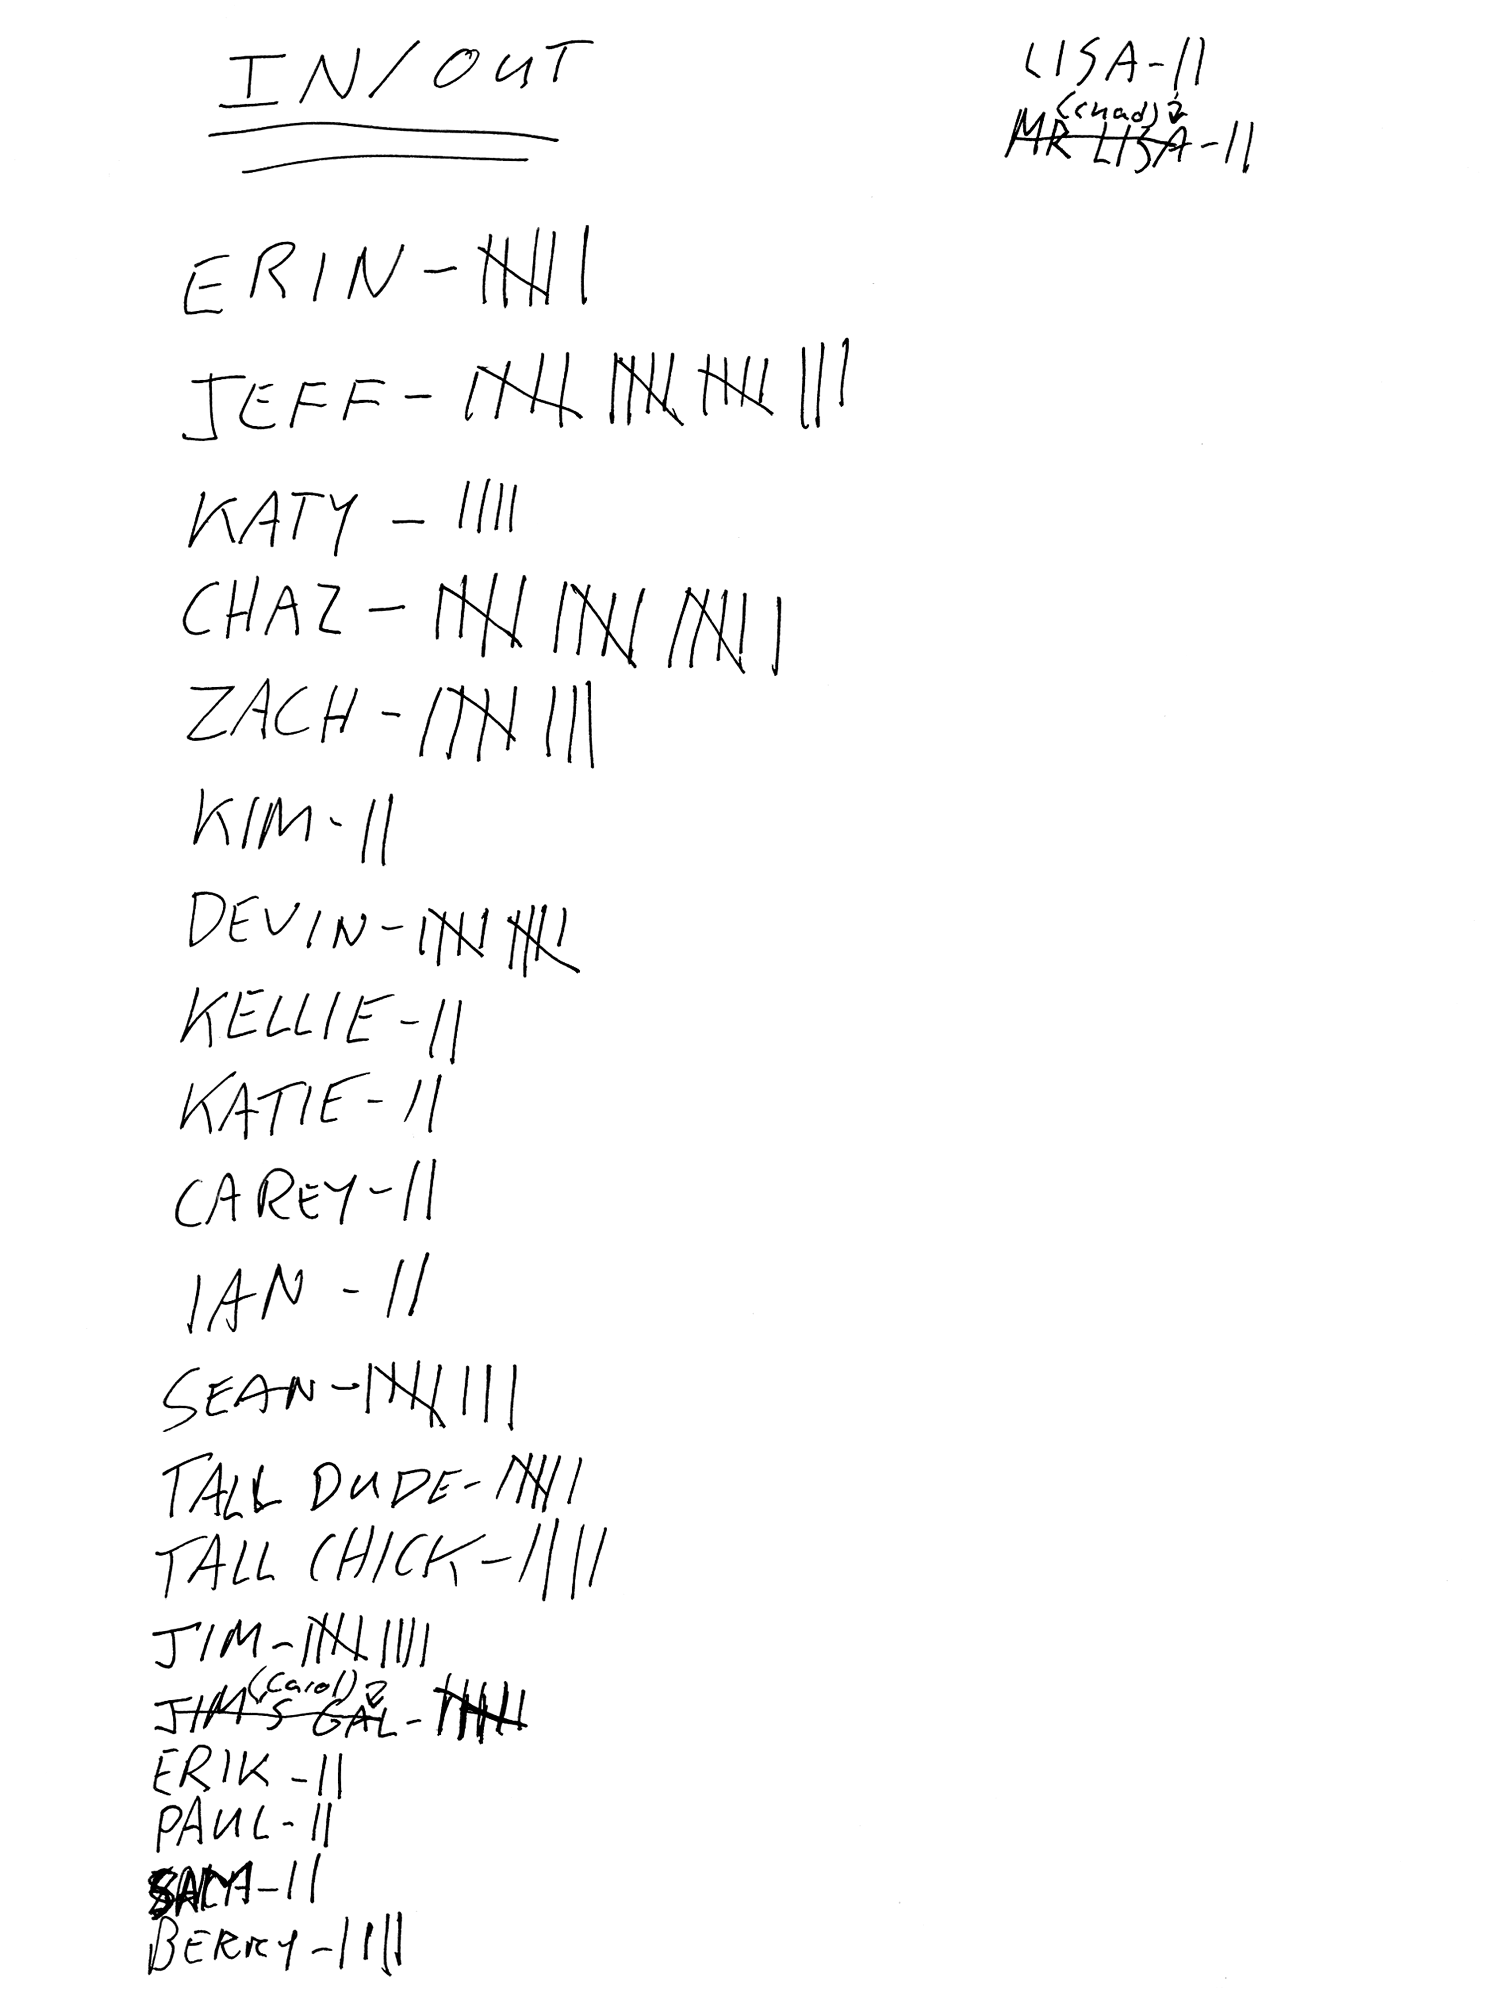 IN/OUT
ERIN - 𝍸 |
JEFF - 𝍸 𝍸 𝍸 |||
KATY - ||||
CHAZ - 𝍸 𝍸 𝍸 |
ZACH - 𝍸 |||
KIM - ||
DEVIN - 𝍸 𝍸
KELLIE - ||
KATIE - ||
CAREY - ||
IAN - ||
SEAN - 𝍸 |||
TALL DUDE - 𝍸 |
TALL CHICK - ||||
JIM - 𝍸 ||||
(Carol)
JIM'S GAL - 𝍸
ERIK - ||
PAUL - ||
- ||
BERRY - ||||
LISA - ||
(Chad)
MR LISA - ||